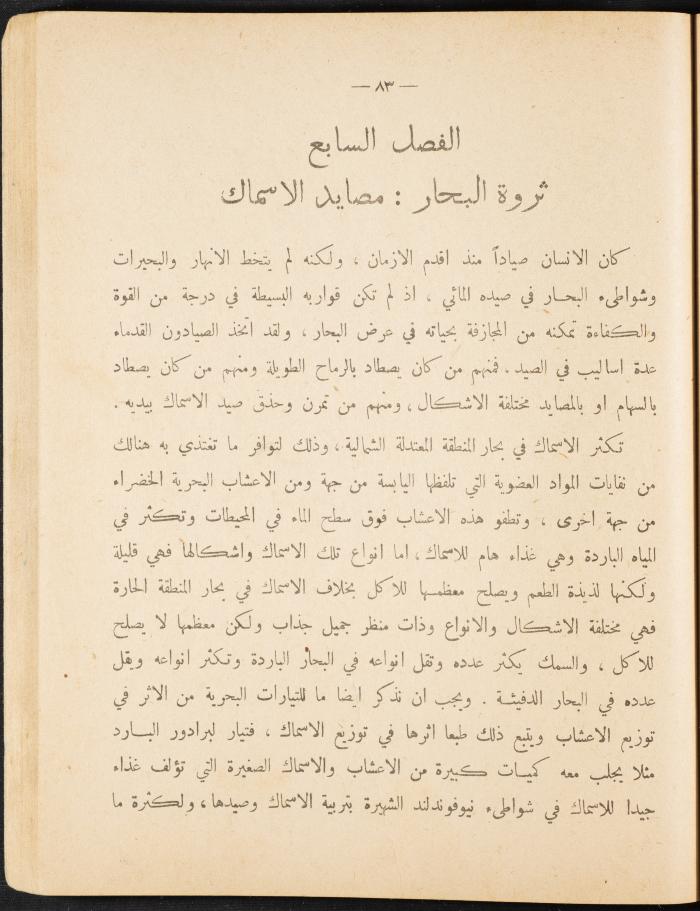 — ٨٣ —
الفصل السابع
ثروة البحار : مصايد الاسماك
كان الانسان صياداً منذ اقدم الازمان ، ولكنه لم يتخط الانهار والبحيرات
وشواطىء البحار في صيده المائي ، اذ لم تكن قواربه البسيطة في درجة من القوة
والكفاءة تمكنه من المجازفة بحياته في عرض البحار ، ولقد اتخذ الصيادون القدماء
عدة اساليب في الصيد . فمنهم من كان يصطاد بالرماح الطويلة ومنهم من كان يصطاد
بالسهام او بالمصايد مختلفة الاشكال ، ومنهم من تمرن وحذق صيد الاسماك بيديه .
تكثر الاسماك في بحار المنطقة المعتدلة الشمالية ، وذلك لتوافر ما تغتذي به هنالك
من نفايات المواد العضوية التي تلفظها اليابسة من جهة ومن الاعشاب البحرية الخضراء
من جهة اخرى ، وتطفو هذه الاعشاب فوق سطح الماء في المحيطات وتكثر في
المياه الباردة وهي غذاء هام للاسماك ، اما انواع تلك الاسماك واشكالها فهي قليلة
ولكنها لذيذة الطعم ويصلح معظمها للاكل بخلاف الاسماك في بحار المنطقة الحارة
فهي مختلفة الاشكال والانواع وذات منظر جميل جذاب ولكن معظمها لا يصلح
للاكل ، والسمك يكثر عدده وتقل انواعه في البحار الباردة وتكثر انواعه ويقل
عدده في البحار الدفيئة . ويجب ان نذكر ايضا ما للتيارات البحرية من الاثر في
توزيع الاعشاب ويتبع ذلك طبعا اثرها في توزيع الاسماك ، فتيار لبرادور البارد
مثلا يجلب معه كميات كبيرة من الاعشاب والاسماك الصغيرة التي تؤلف غذاء
جيدا للاسماك في شواطىء نيوفوندلند الشهيرة بتربية الاسماك وصيدها ، ولكثرة ما